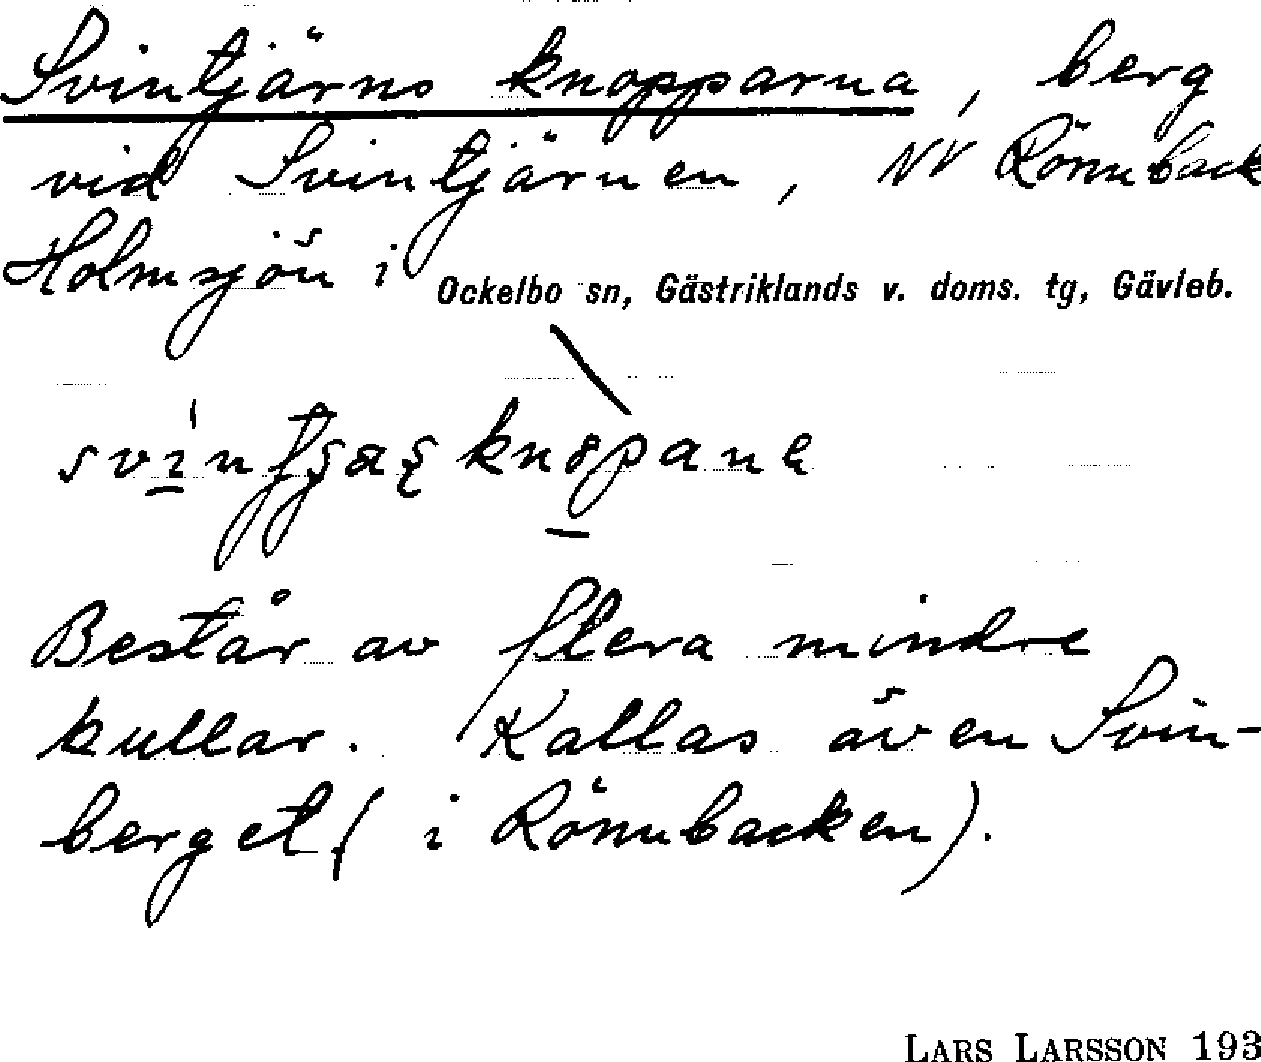 Svintjärns knopparna, berg
vid Svintjärnen, NV Rönnback
Holmsjön i Ockelbo sn, Gästriklands v. doms. tg, Gävleb.
Består av flera mindre
kullar. Kallas även Svin-
berget (i Rönnbacken).
LARS LARSSON 193